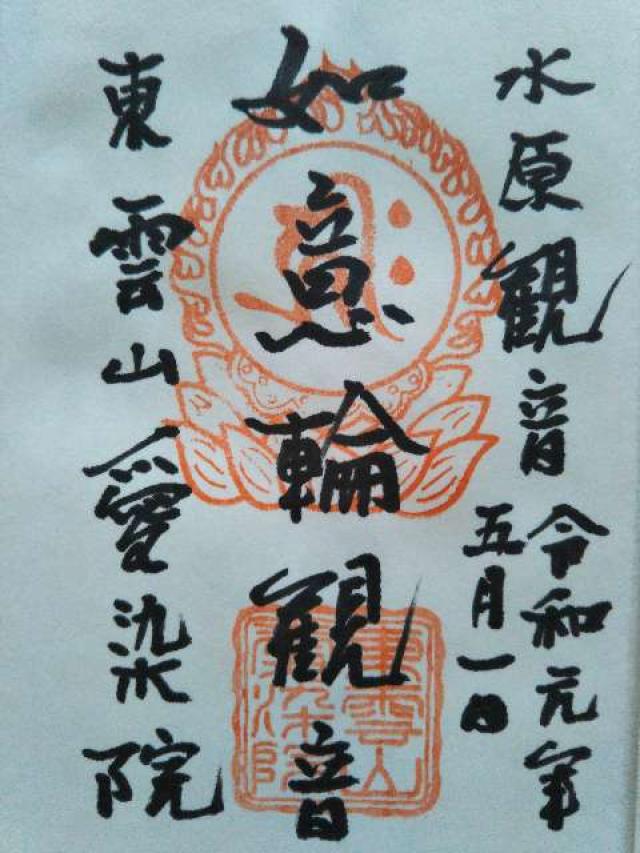 水原觀音
令和元年
五月一日
如意輪觀音
東雲山愛染院
東雲山
愛染院